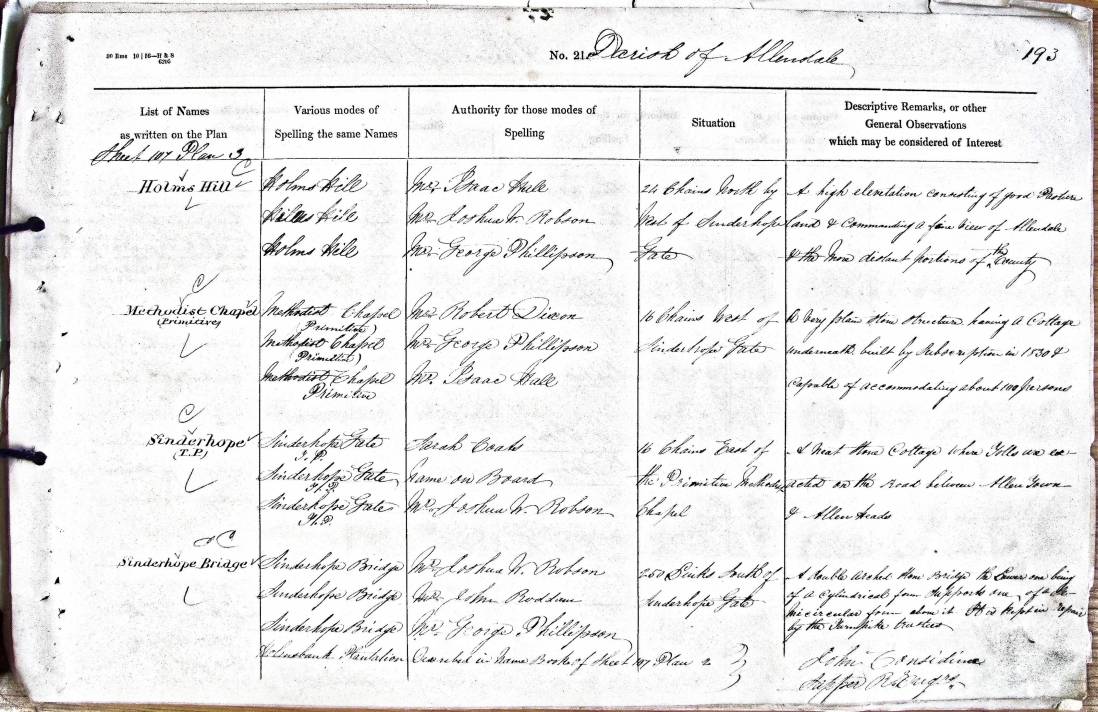 20 Rms 10 | 56—H & S
6205
No. 21. Parish of Allendale
193
List of Names
as written on the Plan
Various modes of
Spelling the same Names
Authority for those modes of
Spelling
Situation
Descriptive Remarks, or other
General Observations
which may be considered of Interest
Sheet 107 Plan 3
Holms Hill
Holms Hill
Mr. Isaac Hull
24 Chains North by
A high elevation consisting of good Pasture
Holms Hill
Mr. Joshua W. Robson
West of Sinderhope
land & Commanding a fine View of Allendale
Holms Hill
Mr. George Phillipson
Gate
& the More distant portions of the County
Methodist Chapel
(Primitive)
Methodist Chapel
Primitive)
Mr. Robert Dixon
16 Chains West of
A Very plain Stone Structure having a Cottage
Methodist Chapel
Primitive)
Mr. George Phillipson
Sinderhope Gate
underneath. built by Subscription in 1830 &
Methodist Chapel
Primitive
Mr. Isaac Hull
Capable of accommodating about 100 persons
Sinderhope
(T.P.)
Sinderhope Gate
T.P.
Sarah Coats
16 Chains East of
A Neat Stone Cottage Where Tolls are ex-
Sinderhope Gate
T.P.
Name on Board
the Primitive Methodist
acted on the Road between Allen Town
Sinderhope Gate
T.P.
Mr. Joshua W Robson
Chapel
& Allen Heads
Sinderhope Bridge
Sinderhope Bridge
Mr. Joshua W. Robson
250 Links South of
A double Arched Stone Bridge the Lower one being
Sinderhope Bridge
Mr. John
Sinderhope Gate
of a Cylindrical form Supports one of a Se-
micircular form above it It is kept in repair
Sinderhope Bridge
Mr. George Phillipson
by the Turnpike trustees
Plantation
Described in Name Book of Sheet 107 Plan 2
John Considine
Sapper R Engrs.